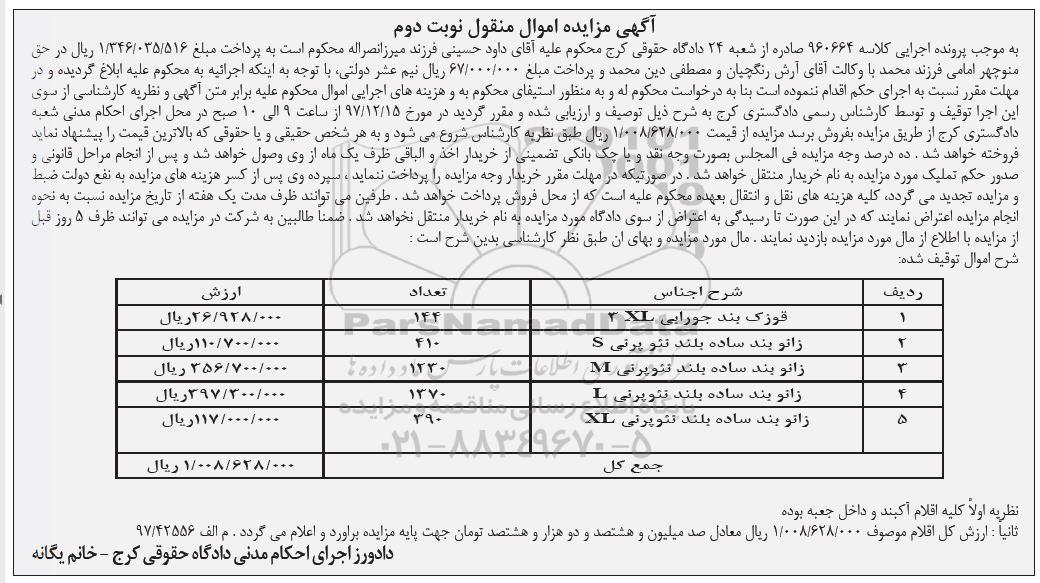 آگهی مزایده اموال منقول نوبت دوم
به موجب پرونده اجرایی کلاسه ۹۶۰۶۶۴ صادره از شعبه ۲۴ دادگاه حقوقی کرج محکوم علیه آقای داود حسینی فرزند میرزانصراله محکوم است به پرداخت مبلغ ۱/۳۴۶/۰۳۵/۵۱۶ ریال در حق
منوچهر امامی فرزند محمد با وکالت آقای آرش رنگچیان و مصطفی دین محمد و پرداخت مبلغ ۶۷/۰۰۰/۰۰۰ ریال نیم عشر دولتی، با توجه به اینکه اجرائیه به محکوم علیه ابلاغ گردیده و در
مهلت مقرر نسبت به اجرای حکم اقدام ننموده است بنا به درخواست محکوم له و به منظور استیفای محکوم به و هزینه های اجرایی اموال محکوم علیه برابر متن آگهی و نظریه کارشناسی از سوی
این اجرا توقیف و توسط کارشناس رسمی دادگستری کرج به شرح ذیل توصیف و ارزیابی شده و مقرر گردید در مورخ ۹۷/۱۲/۱۵ از ساعت ۹ الی ۱۰ صبح در محل اجرای احکام مدنی شعبه
دادگستری کرج از طریق مزایده بفروش برسد مزایده از قیمت ۱/۰۰۸/۶۲۸/۰۰۰ ریال طبق نظریه کارشناس شروع می شود و به هر شخص حقیقی و یا حقوقی که بالاترین قیمت را پیشنهاد نماید
فروخته خواهد شد . ده درصد وجه مزایده فی المجلس بصورت وجه نقد و یا چک بانکی تضمینی از خریدار اخذ و الباقی ظرف یک ماه از وی وصول خواهد شد و پس از انجام مراحل قانونی و
صدور حکم تملیک مورد مزایده به نام خریدار منتقل خواهد شد . در صورتیکه در مهلت مقرر خریدار وجه مزایده را پرداخت ننماید ، سپرده وی پس از کسر هزینه های مزایده به نفع دولت ضبط
و مزایده تجدید می گردد، کلیه هزینه های نقل و انتقال بعهده محکوم علیه است که از محل فروش پرداخت خواهد شد . طرفین می توانند ظرف مدت یک هفته از تاریخ مزایده نسبت به نحوه
انجام مزایده اعتراض نمایند که در این صورت تا رسیدگی به اعتراض از سوی دادگاه مورد مزایده به نام خریدار منتقل نخواهد شد . ضمناً طالبین به شرکت در مزایده می توانند ظرف ۵ روز قبل
از مزایده با اطلاع از مال مورد مزایده بازدید نمایند . مال مورد مزایده و بهای ان طبق نظر کارشناسی بدین شرح است :
شرح اموال توقیف شده:
ردیف شرح اجناس تعداد ارزش
۱ قوزک بند جورابی XL ۳ ۱۴۴ ۲۶/۹۲۸/۰۰۰ریال
۲ زانو بند ساده بلند نئو پرنی S ۴۱۰ ۱۱۰/۷۰۰/۰۰۰ریال
۳ زانو بند ساده بلند نئوپرنی M ۱۲۳۰ ۳۵۶/۷۰۰/۰۰۰ ریال
۴ زانو بند ساده بلند نئوپرنی L ۱۳۷۰ ۳۹۷/۳۰۰/۰۰۰ریال
۵ زانو بند ساده بلند نئوپرنی XL ۳۹۰ ۱۱۷/۰۰۰/۰۰۰ریال
جمع کل ۱/۰۰۸/۶۲۸/۰۰۰ ریال
ParsNamadData
پایگاه اطلاع رسانی مناقصه و مزایده
۰۲۱-۸۸۳۴۹۶۷۰-۵
نظریه اولاً کلیه اقلام آکبند و داخل جعبه بوده
ثانیاً : ارزش کل اقلام موصوف ۱/۰۰۸/۶۲۸/۰۰۰ ریال معادل صد میلیون و هشتصد و دو هزار و هشتصد تومان جهت پایه مزایده براورد و اعلام می گردد . م الف ۹۷/۴۲۵۵۶
دادورز اجرای احکام مدنی دادگاه حقوقی کرج - خانم یگانه